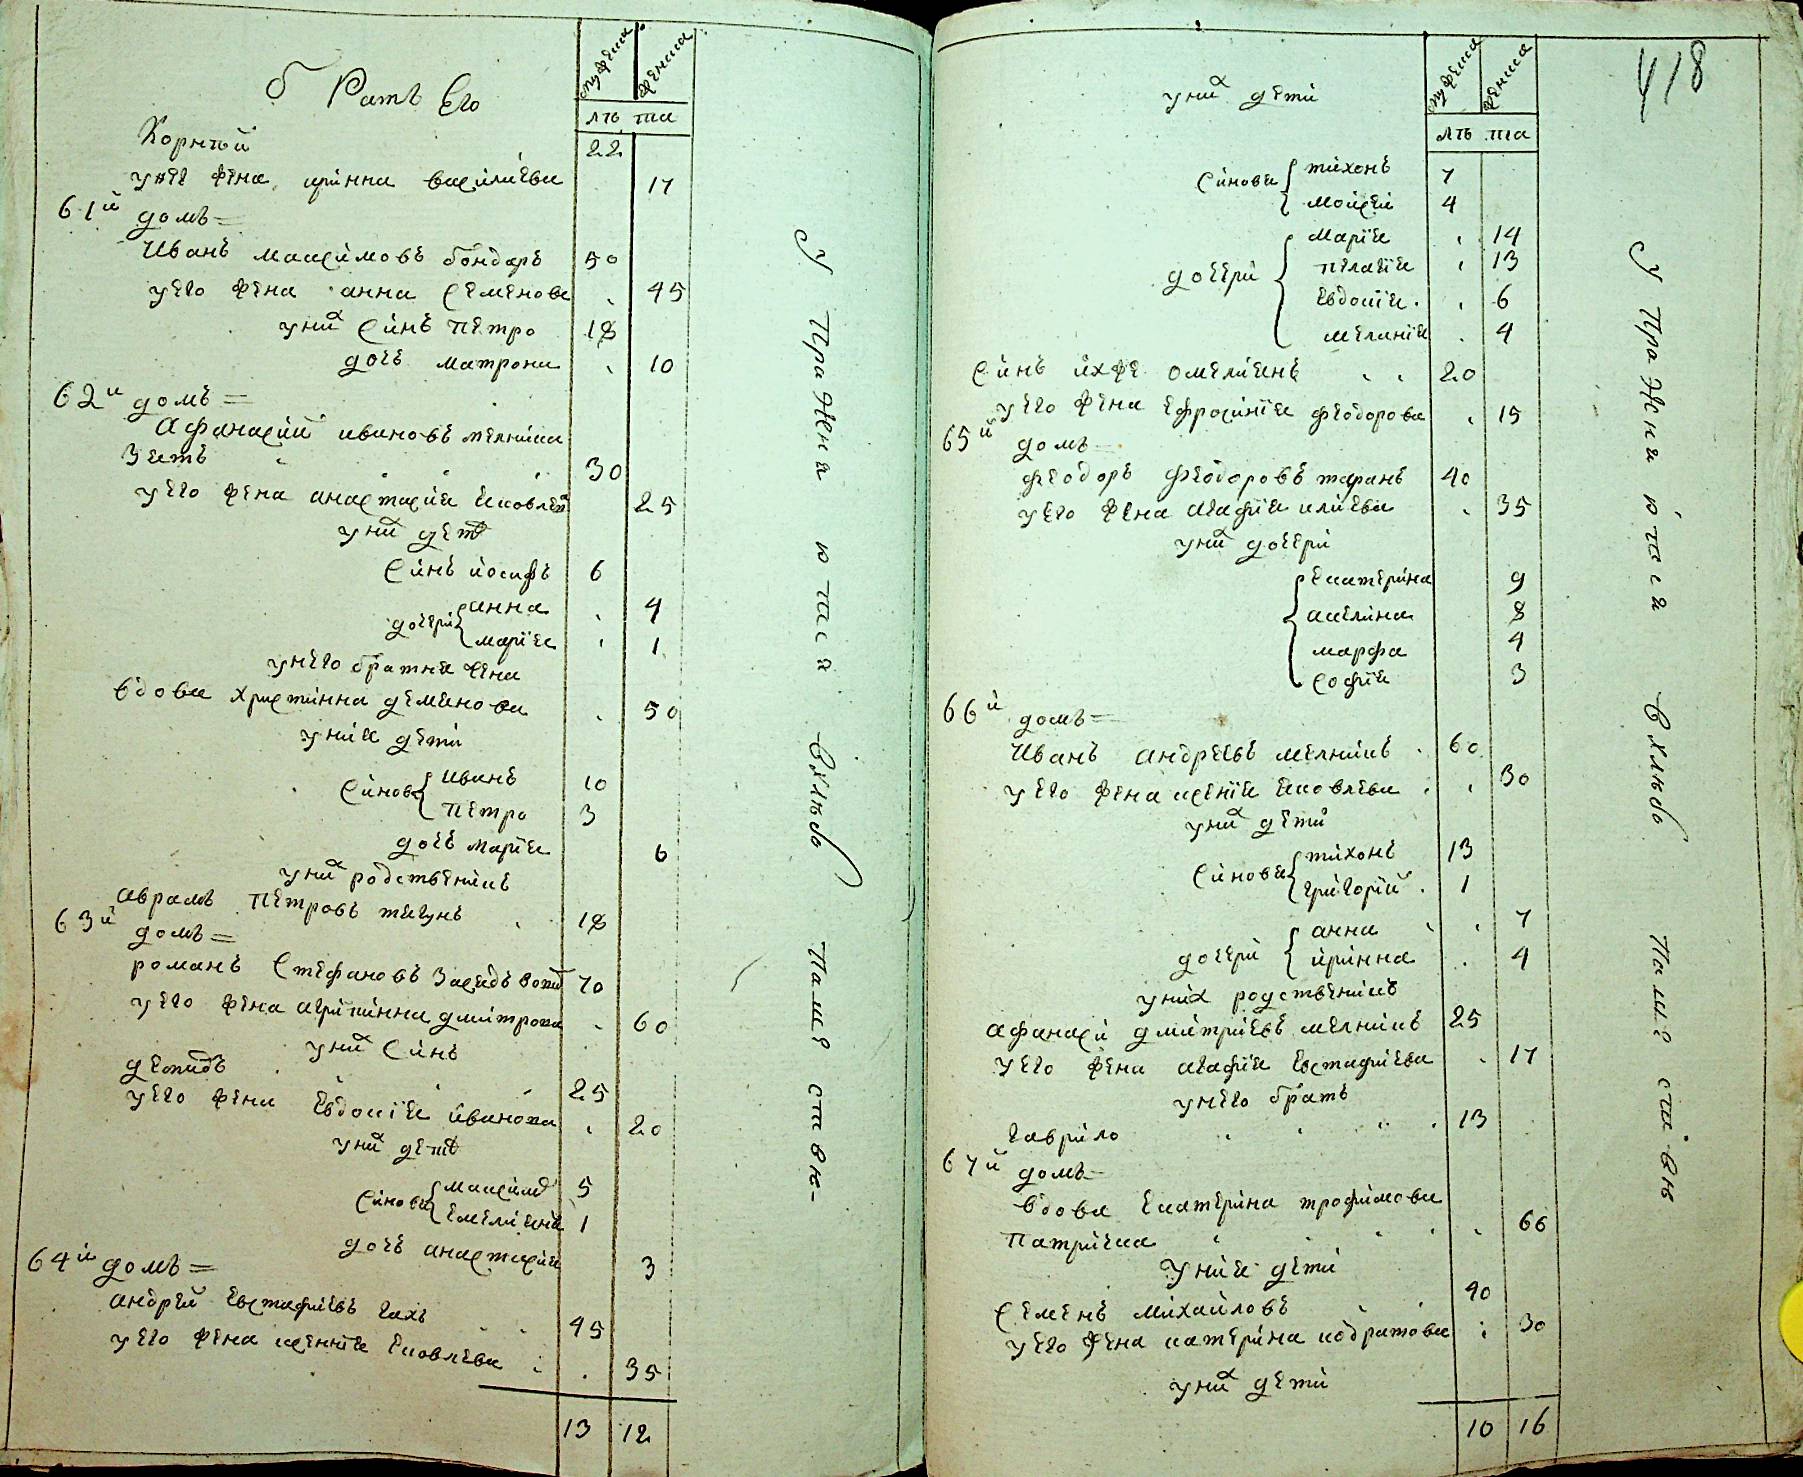 братъ Его
мужеска женска
лѣ та
Корнѣй 22
у нег жена иринна василиева 17
61й домъ =
Иванъ максимовъ бондарь 50
у его жена анна Семенова 45
у них Синъ петро 18
дочъ матрона 10
62й домъ =
Афанасий ивановъ мелника
Зеть 30
у его жена анастасия Яковлев 25
у них дети
Синъ йосифъ 6
дочери
анна 4
мария 1
у него братня жена
вдова христинна деменова 50
у нйя дети
Синов
иванъ 10
петро 3
дочъ мария 6
у них родственикъ
аврамъ петровъ тигунъ 18
63й домъ =
романъ Стефановъ 70
у его жена агрипинна дмитрова 60
у них Синъ
демидъ 25
у его жена Евдокия йванова 20
у них дети
Синови
максимъ 5
Емелиянъ 1
дочъ анастасия 3
64й домъ =
андрей Евстафиевъ гахъ 45
у его жена ксенния Яковлева 35
13 12
У Пражни ютаси вхлѣбо Паше ставю-
418
у них дети
мужеска женска
лѣ та
Синови
тихонъ 7
мойсей 4
дочери
мария 14
пелагия 13
Евдокия 6
мелания 4
Синъ йхже омелиянъ 20
у его жена Ефросиния феодорова 15
65й домъ =
феодоръ феодоровъ таранъ 40
у его жена агафия илиева 35
у них дочери
Екатерина 9
акелина 8
марфа 4
софия 3
66й домъ =
Иванъ андреевъ мелникъ 60
у его жена ксения Яковлева 30
у них дети
Синови
тихонъ 13
григорий 1
дочери
анна 7
йринна 4
у них родственикъ
афанасй дмитриевъ мелникъ 25
у его жена агафия Евстафиева 17
у него братъ
гаврило 13
67й домъ =
вдова Екатерина трофимова
патрицка 66
у ния дети
Семенъ михайловъ 40
у его жена катерина кодратова 30
у них дети
10 16
У Пражни ютаси вхлѣбо Паше ставю